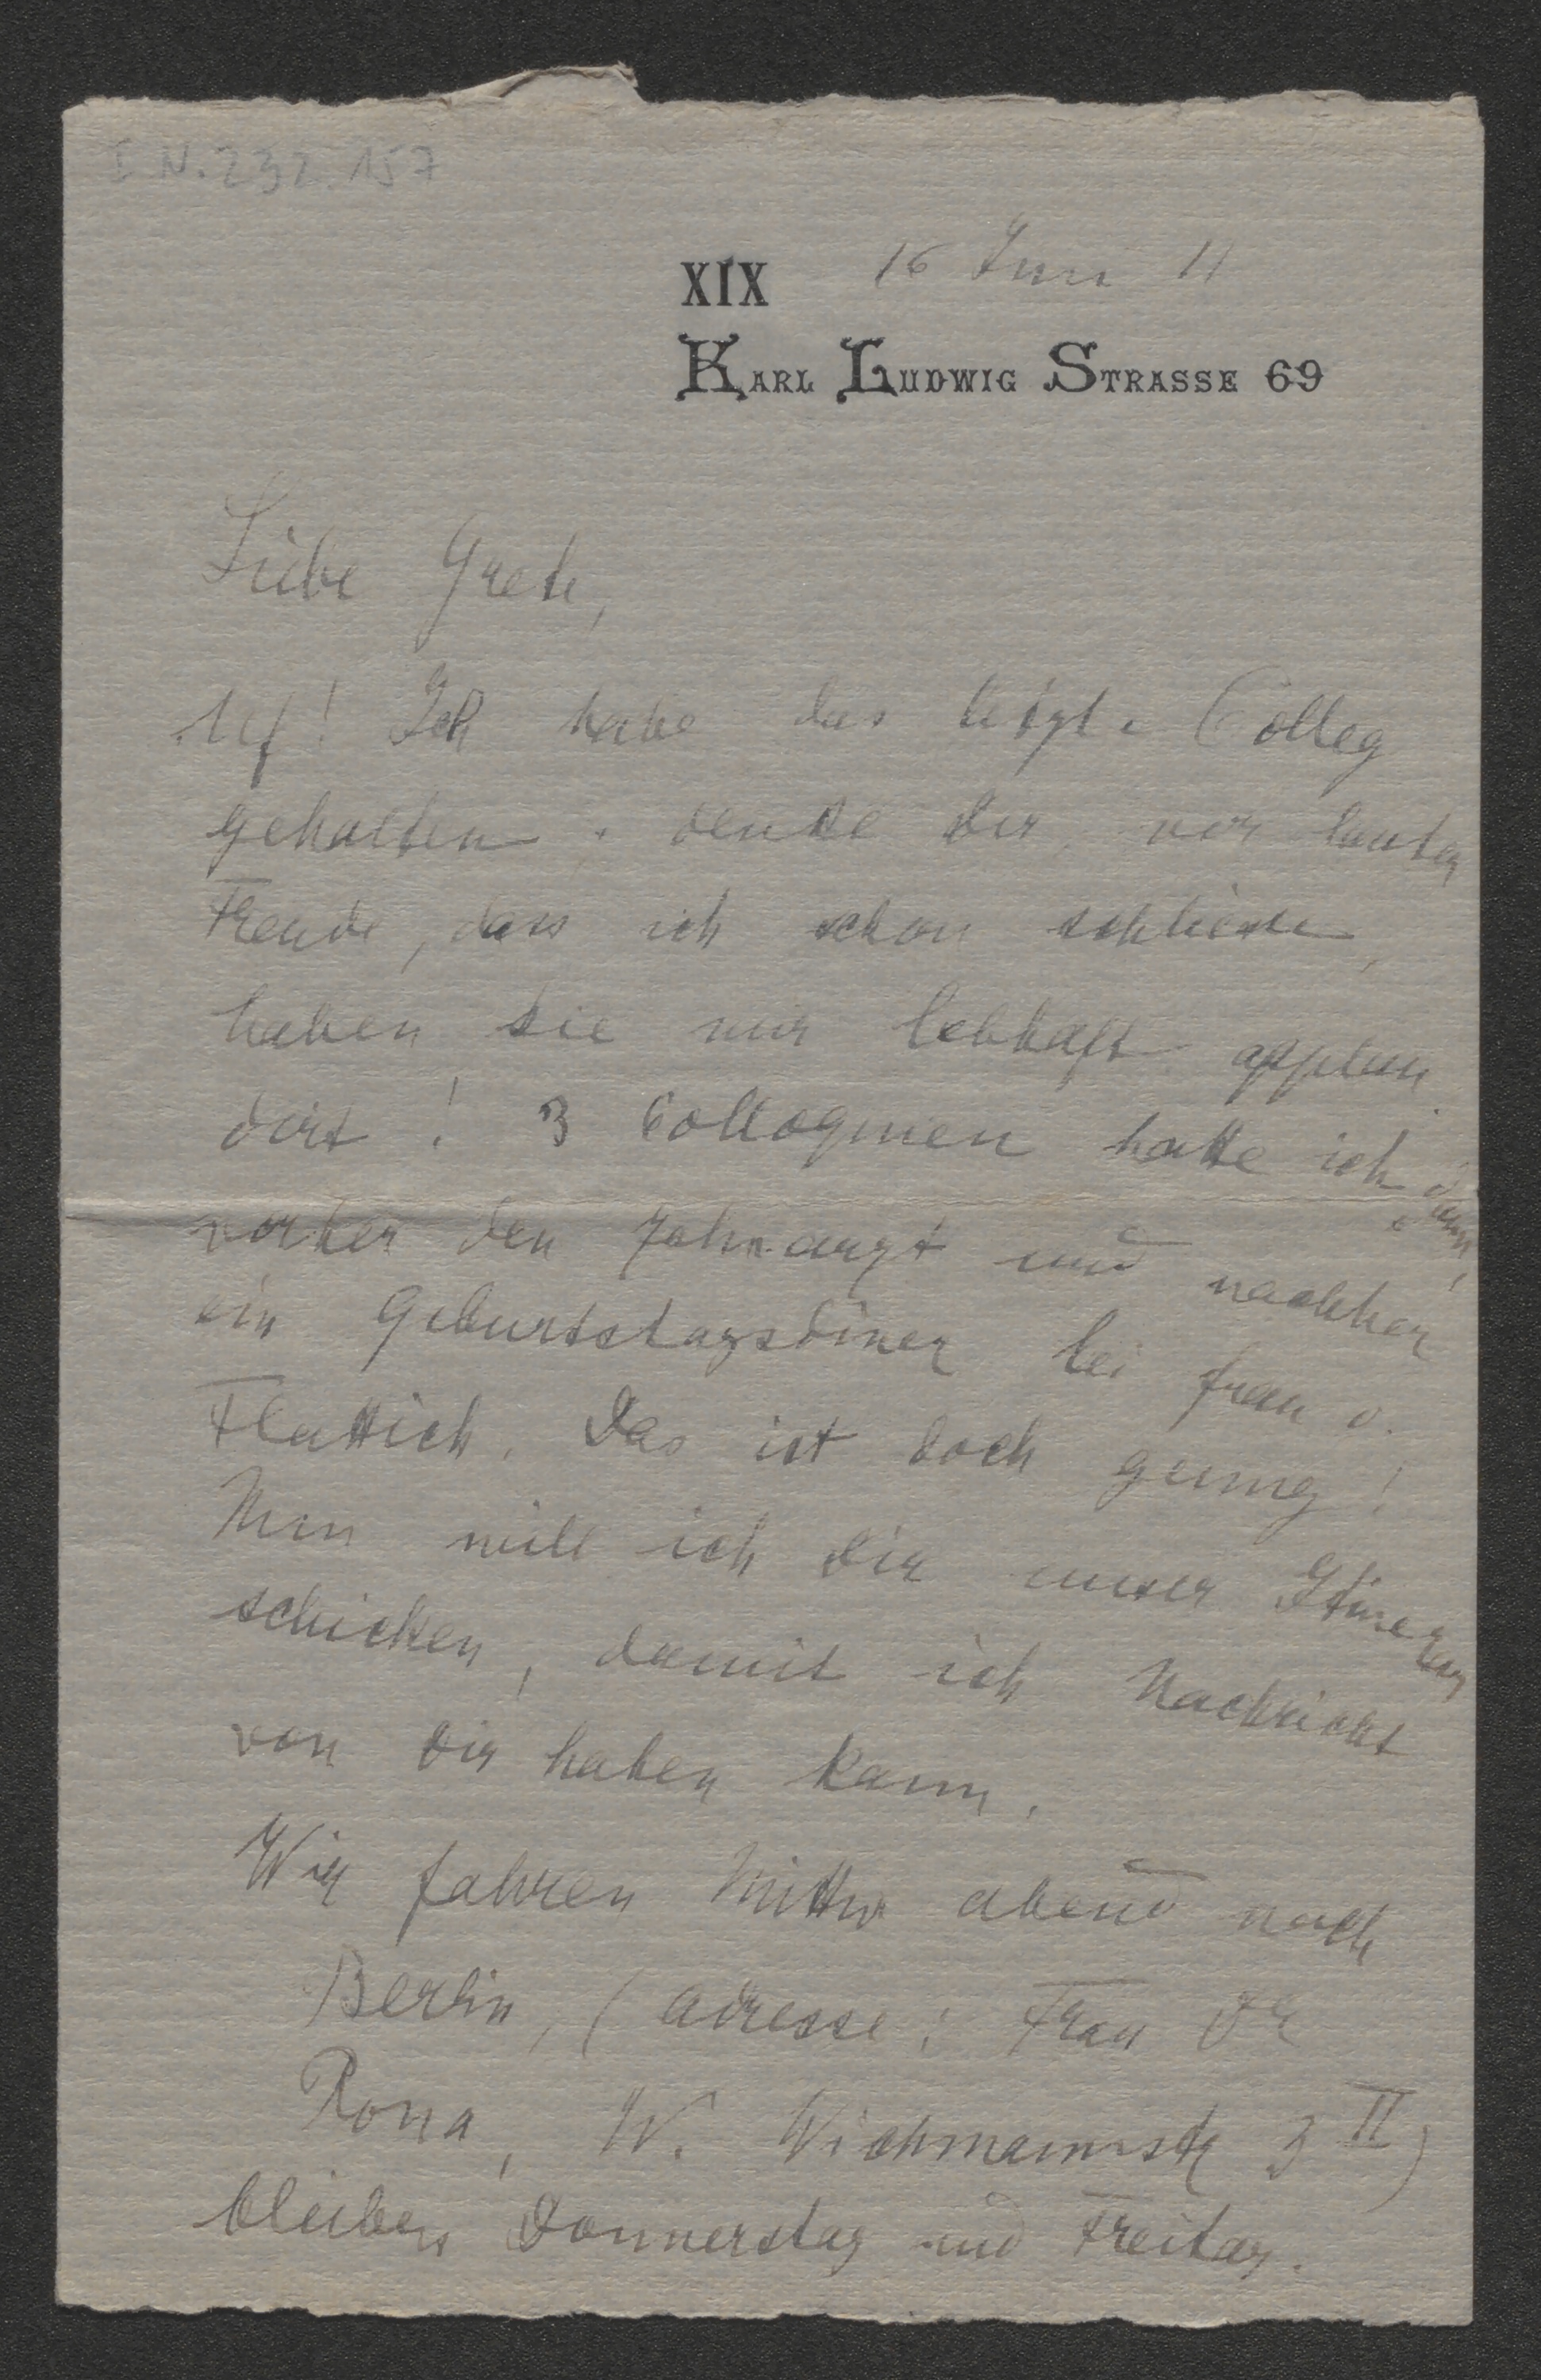 I N. 232.157
XIX 16 Juni 11
KARL LUDWIG STRASSE 69
Liebe Grete,
Uf! Ich habe das letzte Colleg
gehalten. denke dir, vor lauter
Freude, dass ich schon schliesse,
haben sie mir lebhaft applau
dirt! 3 Colloquien hatte ich dann,
vorher den Zahnarzt und nachher
ein Geburtstagsdiner bei Frau v.
Flattich. Das ist doch genug!
Nun will ich dir unser Itinerar
schicken, damit ich Nachricht
von dir haben kann.
Wir fahren Mittw abend nach
Berlin, (Adresse: Frau Dr
Rona, W. Wichmannstr 3 II)
bleiben Donnerstag und Freitag.